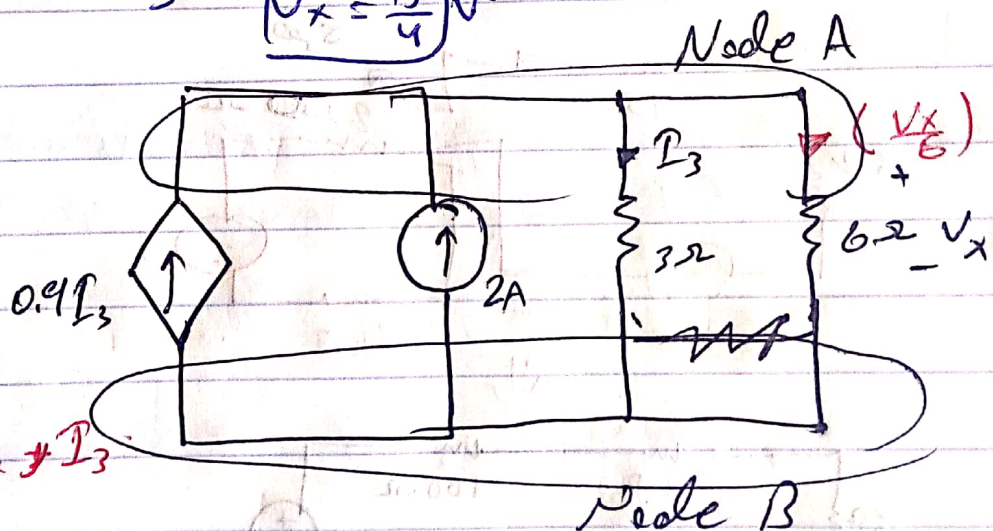 Vx = 15/4 V
Node A
I3
(Vx/6)
+
3Ω
6Ω Vx
-
0.9I3
2A
I3
Node B